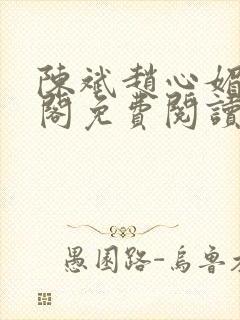 陳斌趙心媚
閣免費閱讀
愚園路-烏魯木